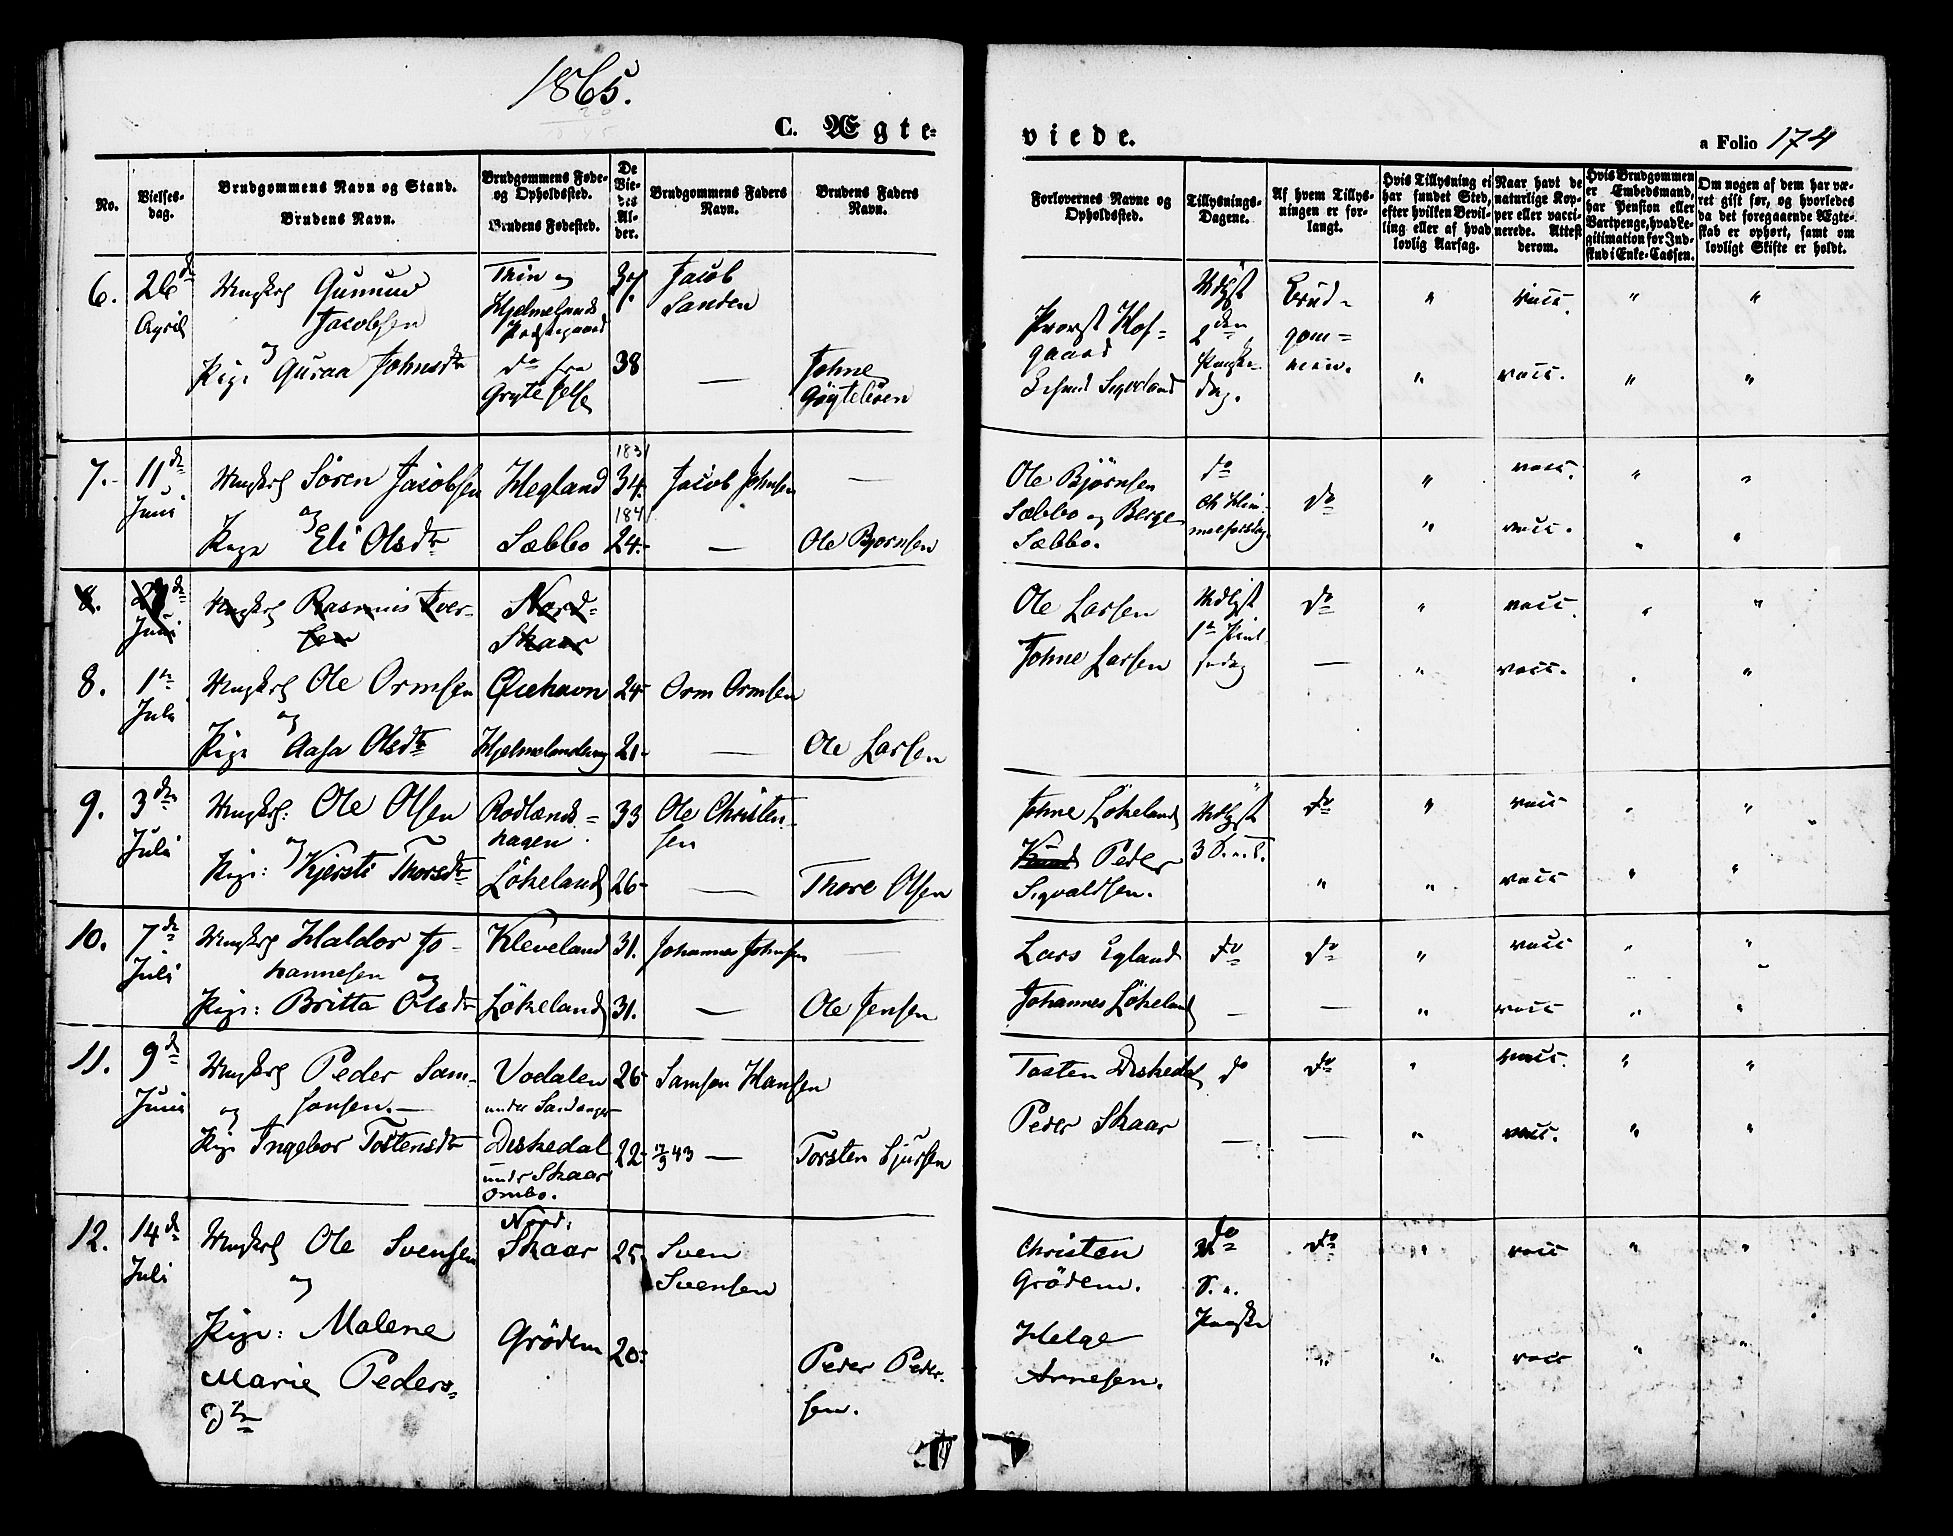 1865.
C. Ægte-
viede.
a Folio 174
No.
Vielses-
dag.
Brudgommens Navn og Stand.
Brudens Navn.
Brudgommens Føde-
og Opholdssted.
Brudens Fødested.
De
Vie-
des
Al-
der.
Brudgommens Faders
Navn.
Brudens Faders
Navn.
Forlovernes Navne og
Opholdssted.
Tillysnings-
Dagene.
Af hvem Tillys-
ningen er for-
langt.
Hvis Tillysning ei
har fundet Sted,
efter hvilken Bevil-
ling eller af hvad
lovlig Aarsag.
Naar havt de
naturlige Kop-
per eller vacci-
nerede. Attest
derom.
Hvis Brudgommen
er Embedsmand,
har Pension eller
Vartpenge, hvad Le-
gitimation for Ind-
skud i Enke-Cassen.
Om nogen af dem har væ-
ret gift før, og hvorledes
da det foregaaende Ægte-
skab er ophørt, samt om
lovligt Skifte er holdt.
6. 26de April
Ungkarl Gunnar
Jacobsen
og
Pige Guraa Johnsdtr
Hjelmelands
Præstegaard
do fra
37.
38
Jacob
Sanden
—
Johne
Provst Hof-
gaard
2den
Paaske-
dag.
Brud-
gom-
men.
" vacc. " "
" vacc. " "
7. 11te Juni
Ungkarl Sören Jacobsen
og
Pige Eli Olsdtr
Hegland
Sæbbo
1831
34.
1841
24.
Jacob Johnsen —
— Ole Bjørnsen
Ole Bjørnsen
Sæbbo og Berge
Sæbbo.
do
do
" vacc. " "
" vacc. " "
8. Juni
Ungkarl Rasmus Iver-
sen
Nord-
Skaar
8. 1te Juli
Ungkarl Ole Ormsen
og
Pige Aasa Olsdtr
24
21
Orm Ormsen
— Ole Larsen
Ole Larsen
Johne Larsen
do
—
" vacc. " "
" vacc. " "
9. 3die Juli
Ungkarl: Ole Olsen
og
Pige: Kjersti Thorsdtr
Rodlands-
hagen.
Lökeland
33
26
Ole Christen-
sen
— Thore Olsen
Johne Lökeland
Knud Peder
Sigvaldsen.
do
" vacc " "
" " vacc " "
10. 7de Juli
Ungkarl Haldor Jo-
hannesen
og
Pige: Britta Olsdtr
Kleveland
Lökeland
31.
31.
Johannes Johnsen —
— Ole Jensen
Lars Egland
Johannes Lökeland
do do " vacc " "
— — " vacc " "
11. 9de Juni
Ungkarl Peder Sam-
sonsen.—
og
Pige Ingebor Tostensdtr
Vodalen
under
Diskedal
under Skaar
Ombo.
26
22
Samson Hansen
— Torsten Sjursen
Tosten Diskedal
Peder Skaar
do do " vacc. " "
— — " vacc. " "
12. 14de Juli
Ungkarl Ole Svensen
og
Pige: Malene
Marie Peders-
Dtr
Nord.
Skaar
Grödem
25.
20
Sven
Svensen
Peder Peder-
sen.
Christen
Grödem.
Helge
Arnesen.
do
Paaske
do " vacc " "
" " vacc " "